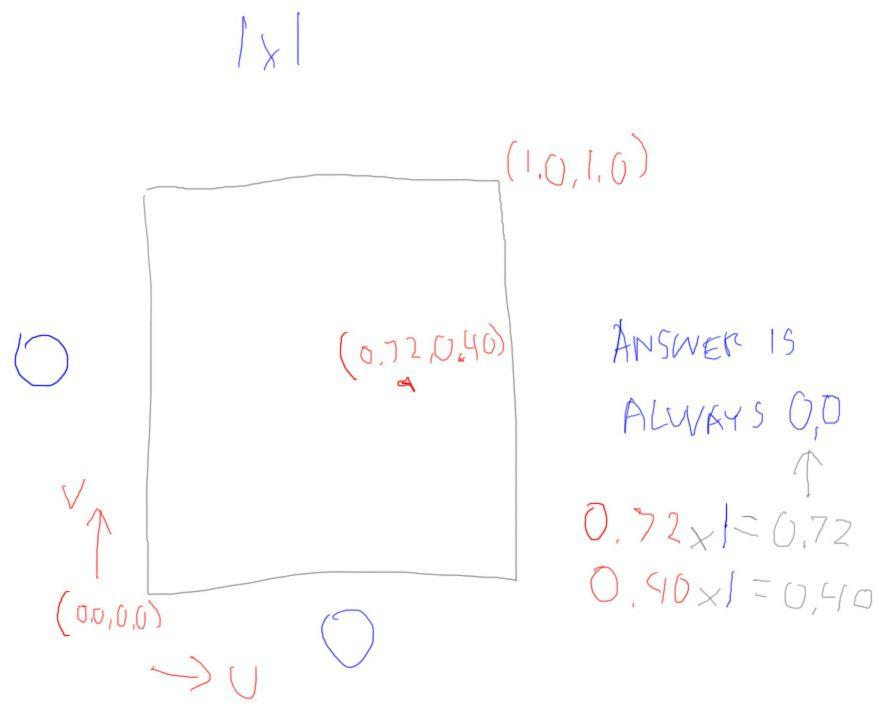 1x1
(1.0,1.0)
(0.72,0.40)
0
ANSWER IS
ALWAYS 0,0
V
0.72x1=0.72
0.40x1=0.40
(0.0,0.0)
0
U